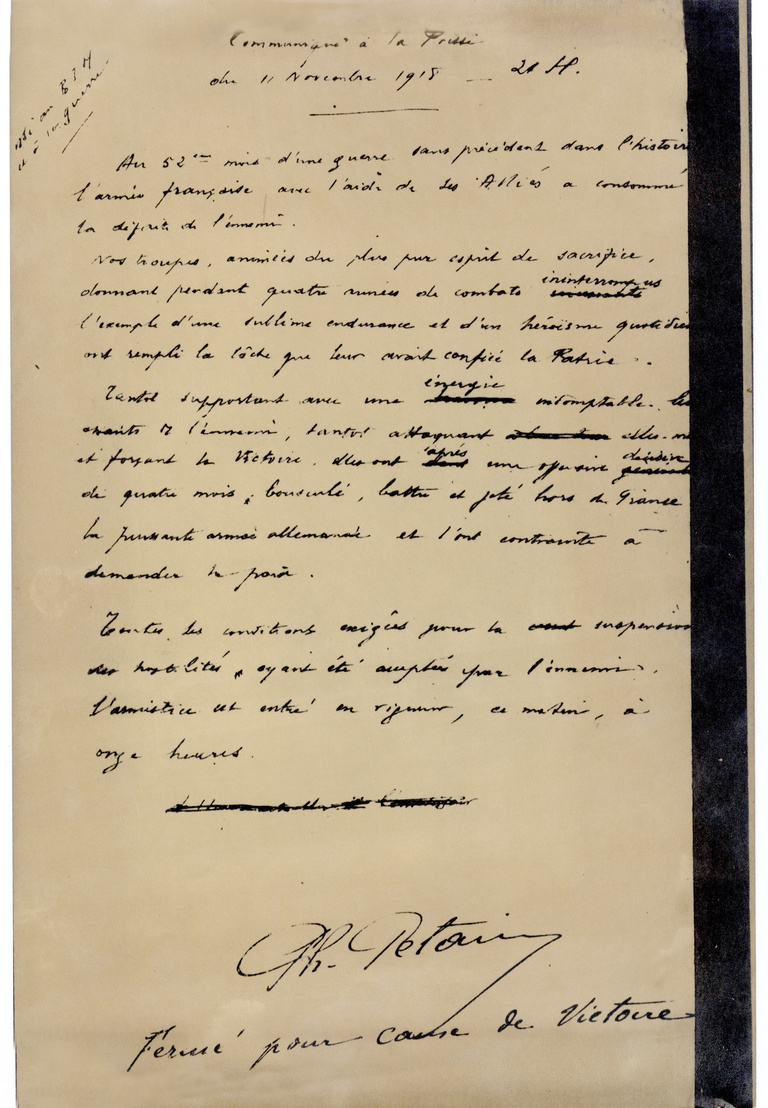 Communiqué à la Presse
du 11 Novembre 1918 — 21 H.
Au 52ème mois d'une guerre sans précédent dans l'histoire
l'armée française avec l'aide de ses Alliés a consommé
la défaite de l'ennemi.
Nos troupes, animées du plus pur esprit de sacrifice,
donnant pendant quatre années de combats ininterrompus
l'exemple d'une sublime endurance et d'un héroïsme quotidien
ont rempli la tâche que leur avait confiée la Patrie.
Tantôt supportant avec une énergie indomptable les
assauts de l'ennemi, tantôt attaquant elles-m
et forçant la Victoire, elles ont après une offensive décisive
de quatre mois, bousculé, battu et jeté hors de France
la puissante armée allemande et l'ont contrainte à
demander la paix.
Toutes les conditions exigées pour la suspension
des hostilités, ayant été acceptées par l'ennemi,
l'armistice est entré en vigueur, ce matin, à
onze heures.
Ph. Petain
Fermé pour cause de Victoire